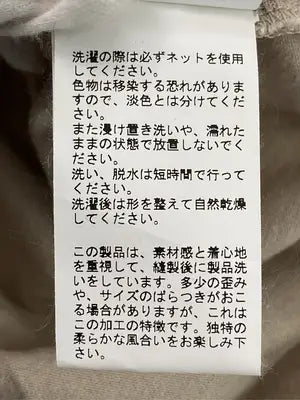 洗濯の際は必ずネットを使用
してください。
色物は移染する恐れがありま
すので、淡色とは分けてくだ
さい。
また浸け置き洗いや、濡れた
ままの状態で放置しないでく
ださい。
洗い、脱水は短時間で行って
ください。
洗濯後は形を整えて自然乾燥
してください。
この製品は、素材感と着心地
を重視して、縫製後に製品洗
いをしています。多少の歪み
や、サイズのばらつきがおこ
る場合がありますが、これは
この加工の特徴です。独特の
柔らかな風合いをお楽しみ下
さい。